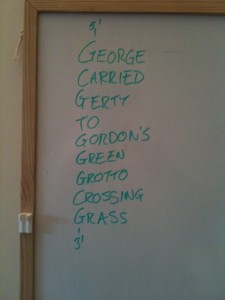 5'
GEORGE
CARRIED
GERTY
TO
GORDON'S
GREEN
GROTTO
CROSSING
GRASS
3'